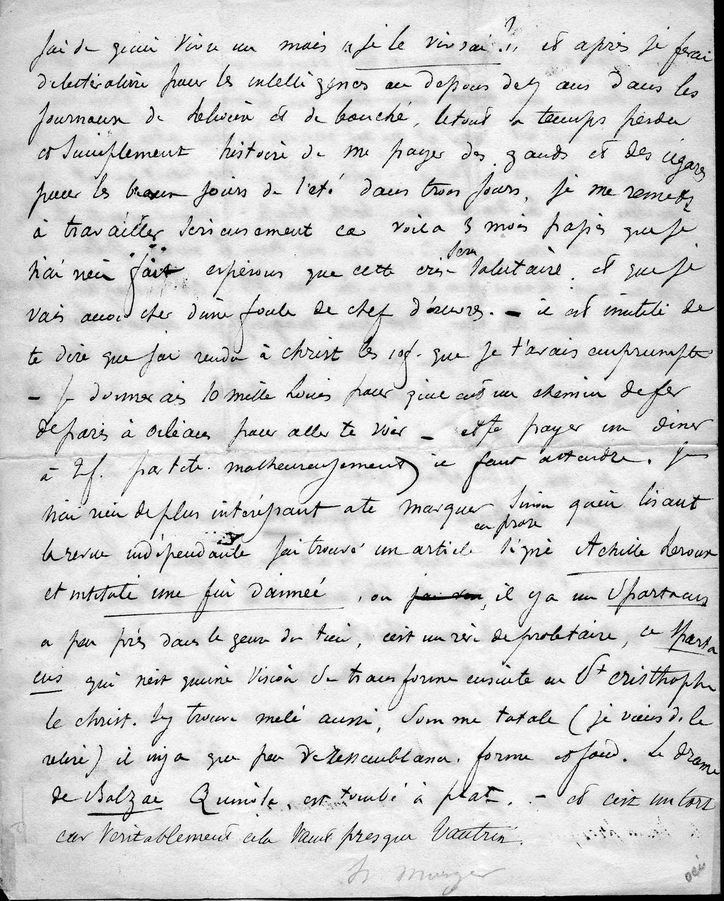 j'ai de quoi vivre un mois je le vivrai !! et après je ferai
de la littérature pour les intelligences au dessous de 7 ans dans les
journaux de et de bouché, le tout a temps perdu
et simplement histoire de me payer des gands et des cigares
pour les beaux jours de l'eté dans trois jours, je me remets
à travailler serieusement ca voila 3 mois passés que je
n'ai rien fait esperons que cette crise sera salutaire et que je
vais accoucher d'une foule de chef d'œuvres. — il est inutile de
te dire que j'ai rendu à christ les 10f. que je t'avais emprumpté
— Je donnerais 10 mille Louis pour qu'il y eut un chemin de fer
de paris à orléans pour aller te voir — et te payer un diner
à 2f. par tete. malheureusement il faut attendre. Je
n'ai rien de plus intéressant a te marquer sinon qu'en lisant
la revue indépendante j'ai trouvé un article en prose signé Achille Leroux
et intitulé une fin d'année, ou il y a un Spartacus
a peu près dans le genre du tien, c'est un rêve de prolétaire, ce Sparta
cus qui n'est qu'une vision se transforme ensuite en St cristhophe
le christ. J'y trouve melé aussi, somme totale (je viens de le
relire) il n'y a que peu de ressemblance. forme et fond. Le drame
de Balzac Quinola, est tombé à plat. — et c'est un tort
car veritablement cela vaut presque Vautrin.
H Murger